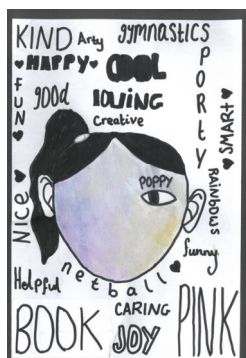 KIND Arty gymnastics
♥HAPPY♥ COOL
SPORTY
FUN♥
good
loving
Creative
♥SMART♥
RAiNBOWS
POPPY
NiCe ♥
funny
netball ♥
Helpful
CARING
BOOK
JOY
PINK